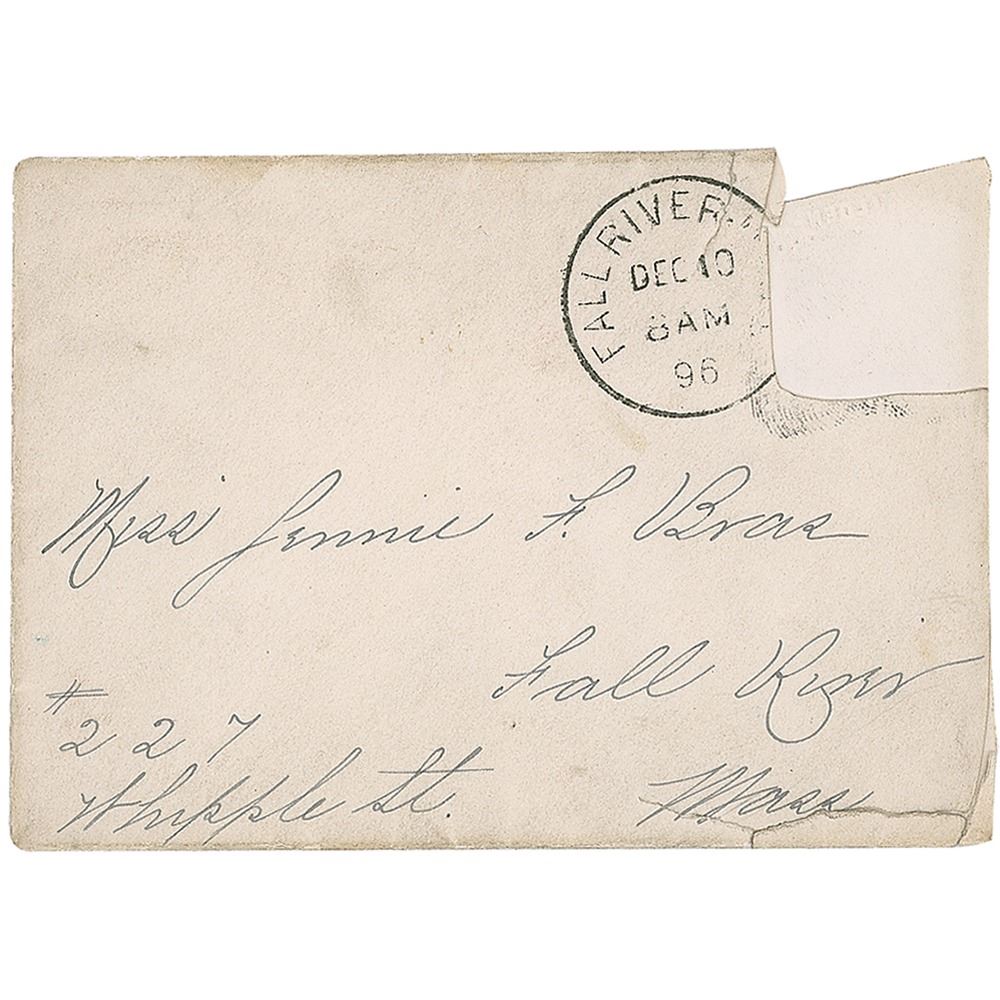 FALL RIVER. M
DEC 10
8 AM
96
Miss Jennie F. Bras
Fall River
#
227
Whipple St.
Mass